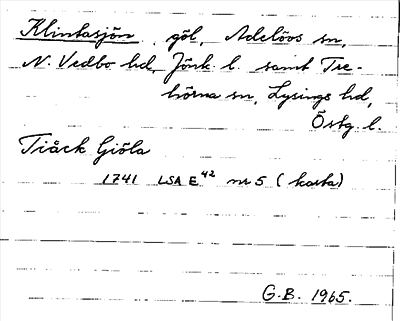 Klintasjön göl, Adelöos sn,
N. Vedbo hd, Jönk l. samt Tre-
hörna sn, Lysings hd,
Östg. l.
Tiåck Giöla
1741 LSA E42 nr 5 (karta)
G.B. 1965.